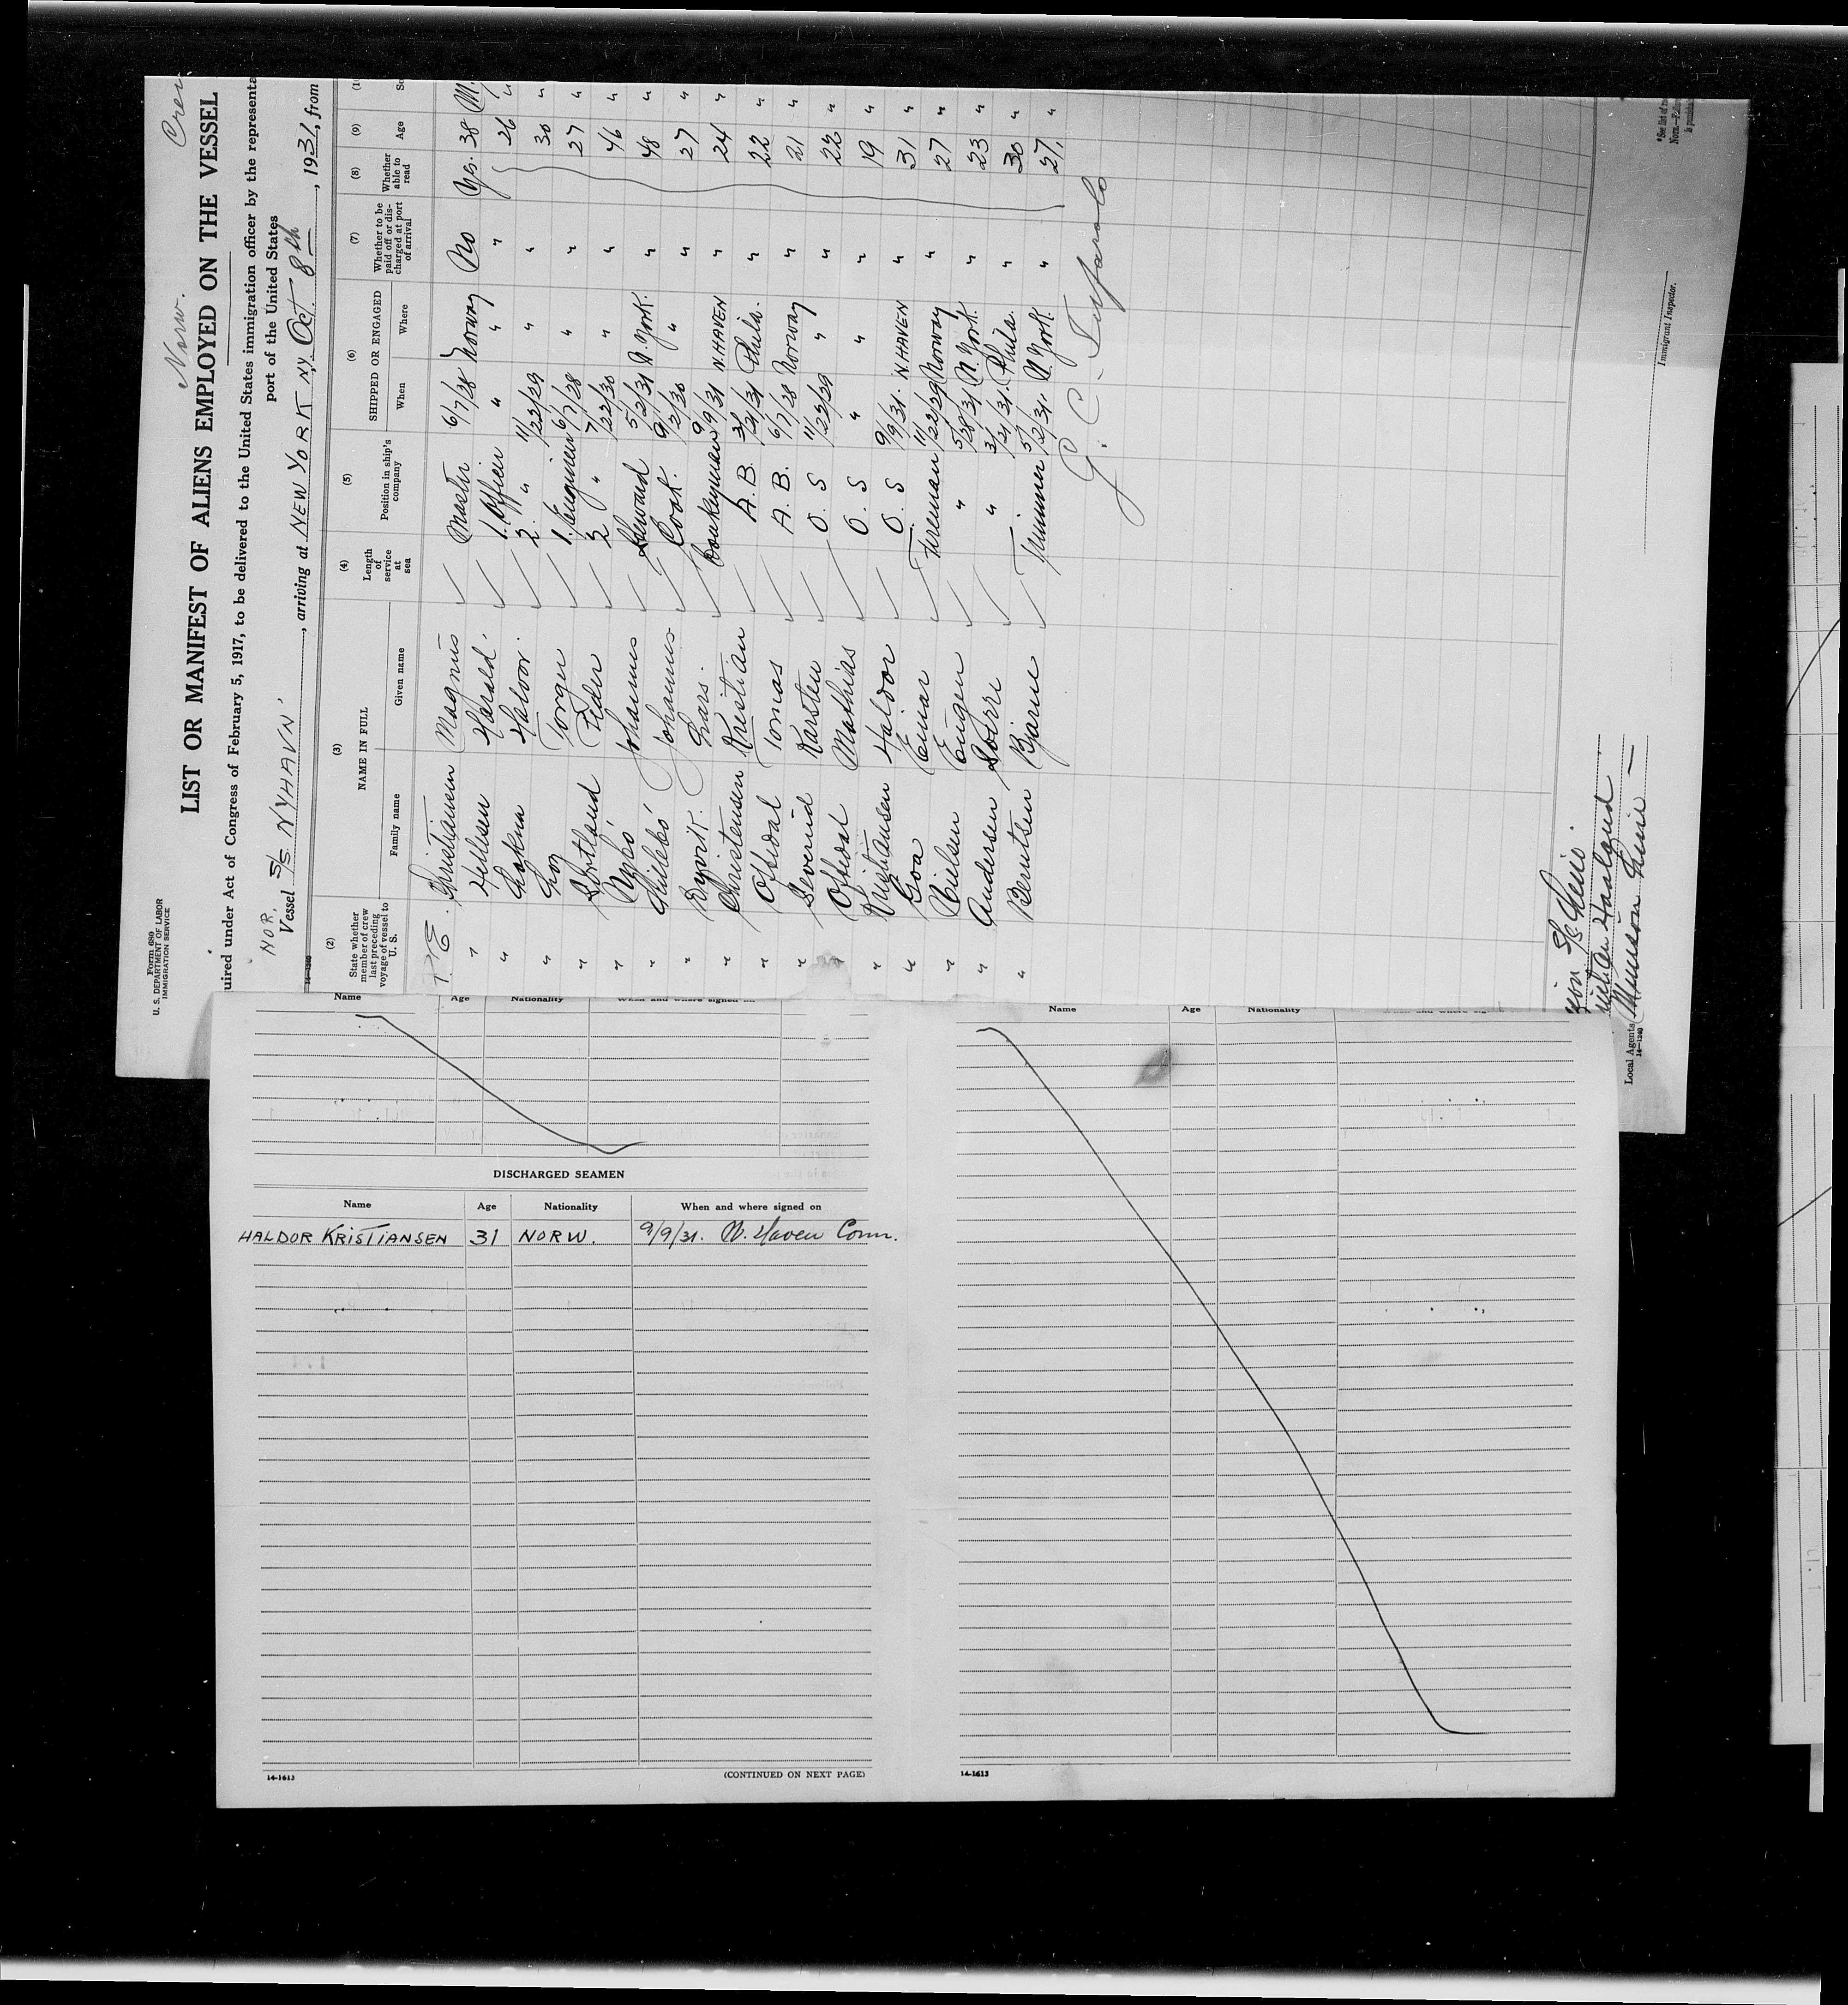 Form 680
U. S. DEPARTMENT OF LABOR
IMMIGRATION SERVICE
Norw. Crew
LIST OR MANIFEST OF ALIENS EMPLOYED ON THE VESSEL
uired under Act of Congress of February 5, 1917, to be delivered to the United States immigration officer by the representa
port of the United States
NOR.
Vessel S/S. NYHAVN, arriving at NEW YORK N.Y. Oct. 8th, 1931, from
14-1240
(2) (3) (4) (5) (6) (7) (8) (9)
State whether member of crew last preceding voyage of vessel to U. S.
NAME IN FULL
Family name Given name
Length of service at sea
Position in ship's company
SHIPPED OR ENGAGED
When Where
Whether to be paid off or discharged at port of arrival
Whether able to read
Age
Christiansen Magnus Master 6/7/28 Norway No Yes. 38 M.
" Hellesen Harald. 1. Officer " " " 26 "
" Halvor. 2. " 11/22/29 " " 30 "
" Torger 1. Engineer 6/7/28 " " 27 "
" Peder 2 " 7/22/30 " " 46 "
" Johannes Steward 5/2/31 N. York. " 48 "
" Johannes Cook. 9/2/30 " " 27 "
" Lars. Donkeyman 9/9/31 N. HAVEN " 24 "
" Christensen Kristian A. B. 3/21/31 Phila. " 22 "
" Oftedal Tomas A. B. 6/7/28 Norway " 21 "
" Severeid Karsten O. S 11/22/29 " " 22 "
" Oftedal Mathias O. S " " " 19 "
" Kristiansen Haldor O. S 9/9/31. N. HAVEN " 31 "
" Goa Einar Fireman 11/22/29 Norway " 27 "
" Nielsen Eugen " 5/28/31 N. York. " 23 "
" Andersen Sverre " 3/21/31. Phila. " 30 "
" Berntsen Bjarne Trimmer 5/2/31. N. York. " 27. "
Immigrant Inspector.
Local Agents Munson Line —
14-1240
Name Age Nationality
Name Age Nationality
DISCHARGED SEAMEN
Name Age Nationality When and where signed on
HALDOR KRISTIANSEN 31 NORW. 9/9/31. N. Haven Conn.
14-1613
(CONTINUED ON NEXT PAGE)
14-1613